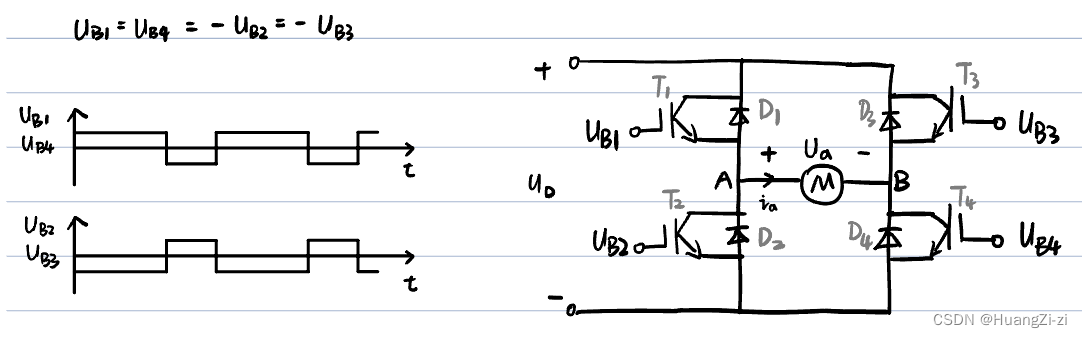 U_B1 = U_B4 = - U_B2 = - U_B3
U_B1
U_B4
t
U_B2
U_B3
t
+
T1
D1
D3
T3
U_B1
U_B3
+ Ua -
U_D
A
M
B
ia
T2
T4
U_B2
D2
D4
U_B4
-
CSDN @HuangZi-zi